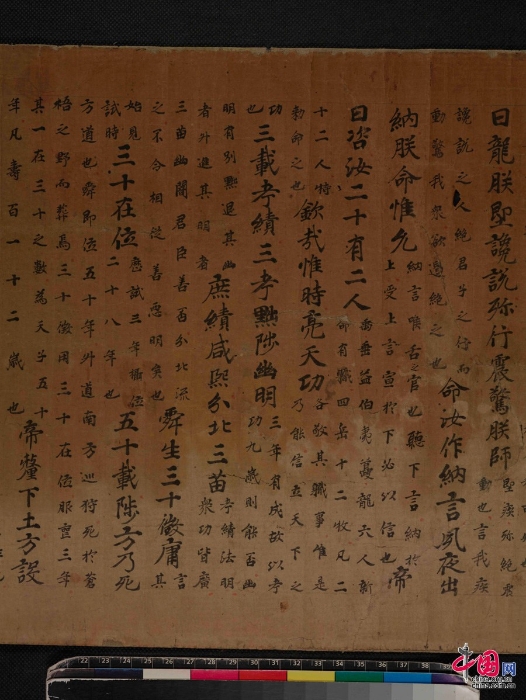 曰龍朕聖讒說殄行震驚朕師聖疾殄絕震
動也言我疾
讒說之人絕君子之行而
動驚我衆欲遏絕之也命汝作納言夙夜出
納朕命惟允納言喉舌之官也聽下言納於
上受上言宣於下必以信也帝
曰咨汝二十有二人禹垂益伯夷夔龍六人新
命有職四岳十二牧凡二
十二人特
勑命之也欽哉惟時亮天功各敬其職事惟是
乃能信立天下之
功
也三載考績三考黜陟幽明三年有成故以考
功九歲則能否幽
明有別黜退其幽
者外進其明者庶績咸熙分北三苗考績法明
衆功皆廣
三苗幽闇君臣善否分北流
之不令相從善惡明矣也舜生三十徵庸言
其
始見
試時三十在位歷試三年攝位
二十八年也五十載陟方乃死
方道也舜即位五十年外道南方巡狩死於蒼
梧之野而葬焉三十徵用三十在位服喪三年
其一在三十之數為天子五十
年凡壽百一十二歲也帝釐下土方設
22 23 24 25 26 27 28 29 30 31 32 33 34 35 36 37 38
中国网